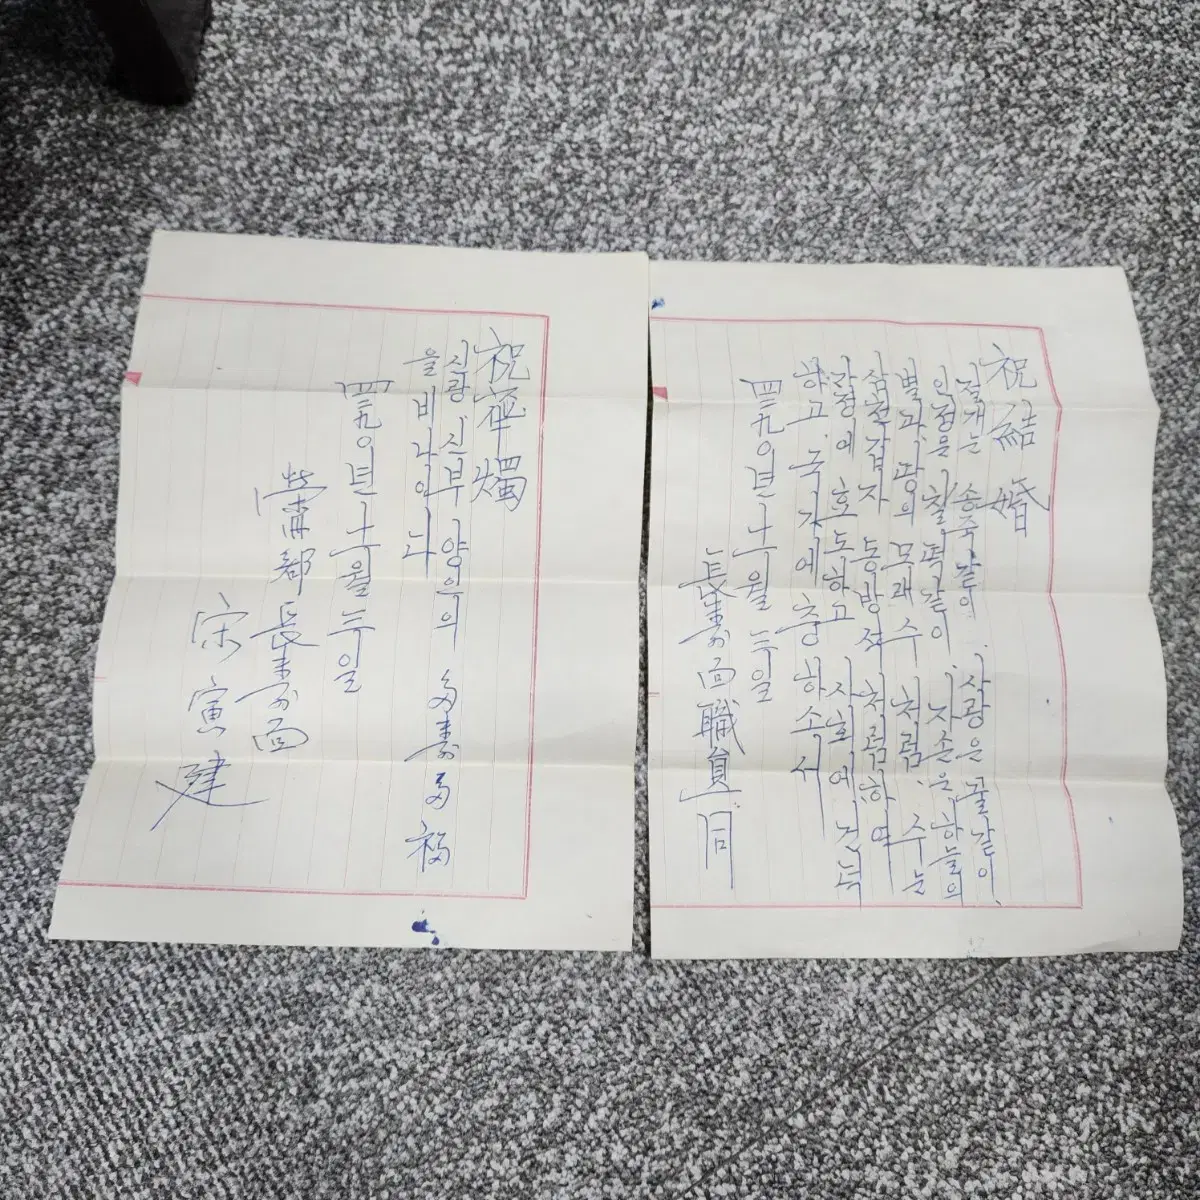 祝結婚
절개는 송죽같이, 사랑은 꿀같이,
인정은 찰떡같이, 자손은 하늘의
별과 땅의 모래수 처럼, 수는
삼천갑자 동방석 처럼하여
가정에 효도하고 사회에 건덕
하고 국가에 충하소서
四二九〇년
長壽面職員一同
祝華燭
신랑 신부 양인의 多壽多福
을 비나이다
四二九〇년
長壽面
宋寅建